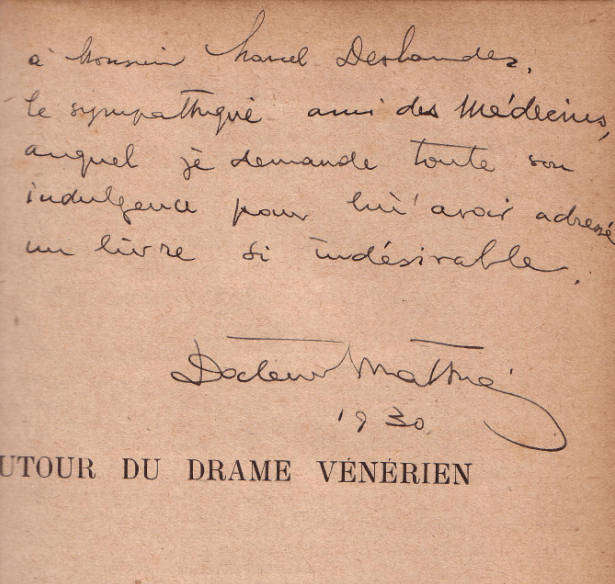 à Monsieur Marcel Deslandes,
le sympathique ami des Médecins,
auquel je demande toute son
indulgence pour lui avoir adressé
un livre si indésirable.
Docteur
1930
UTOUR DU DRAME VÉNÉRIEN